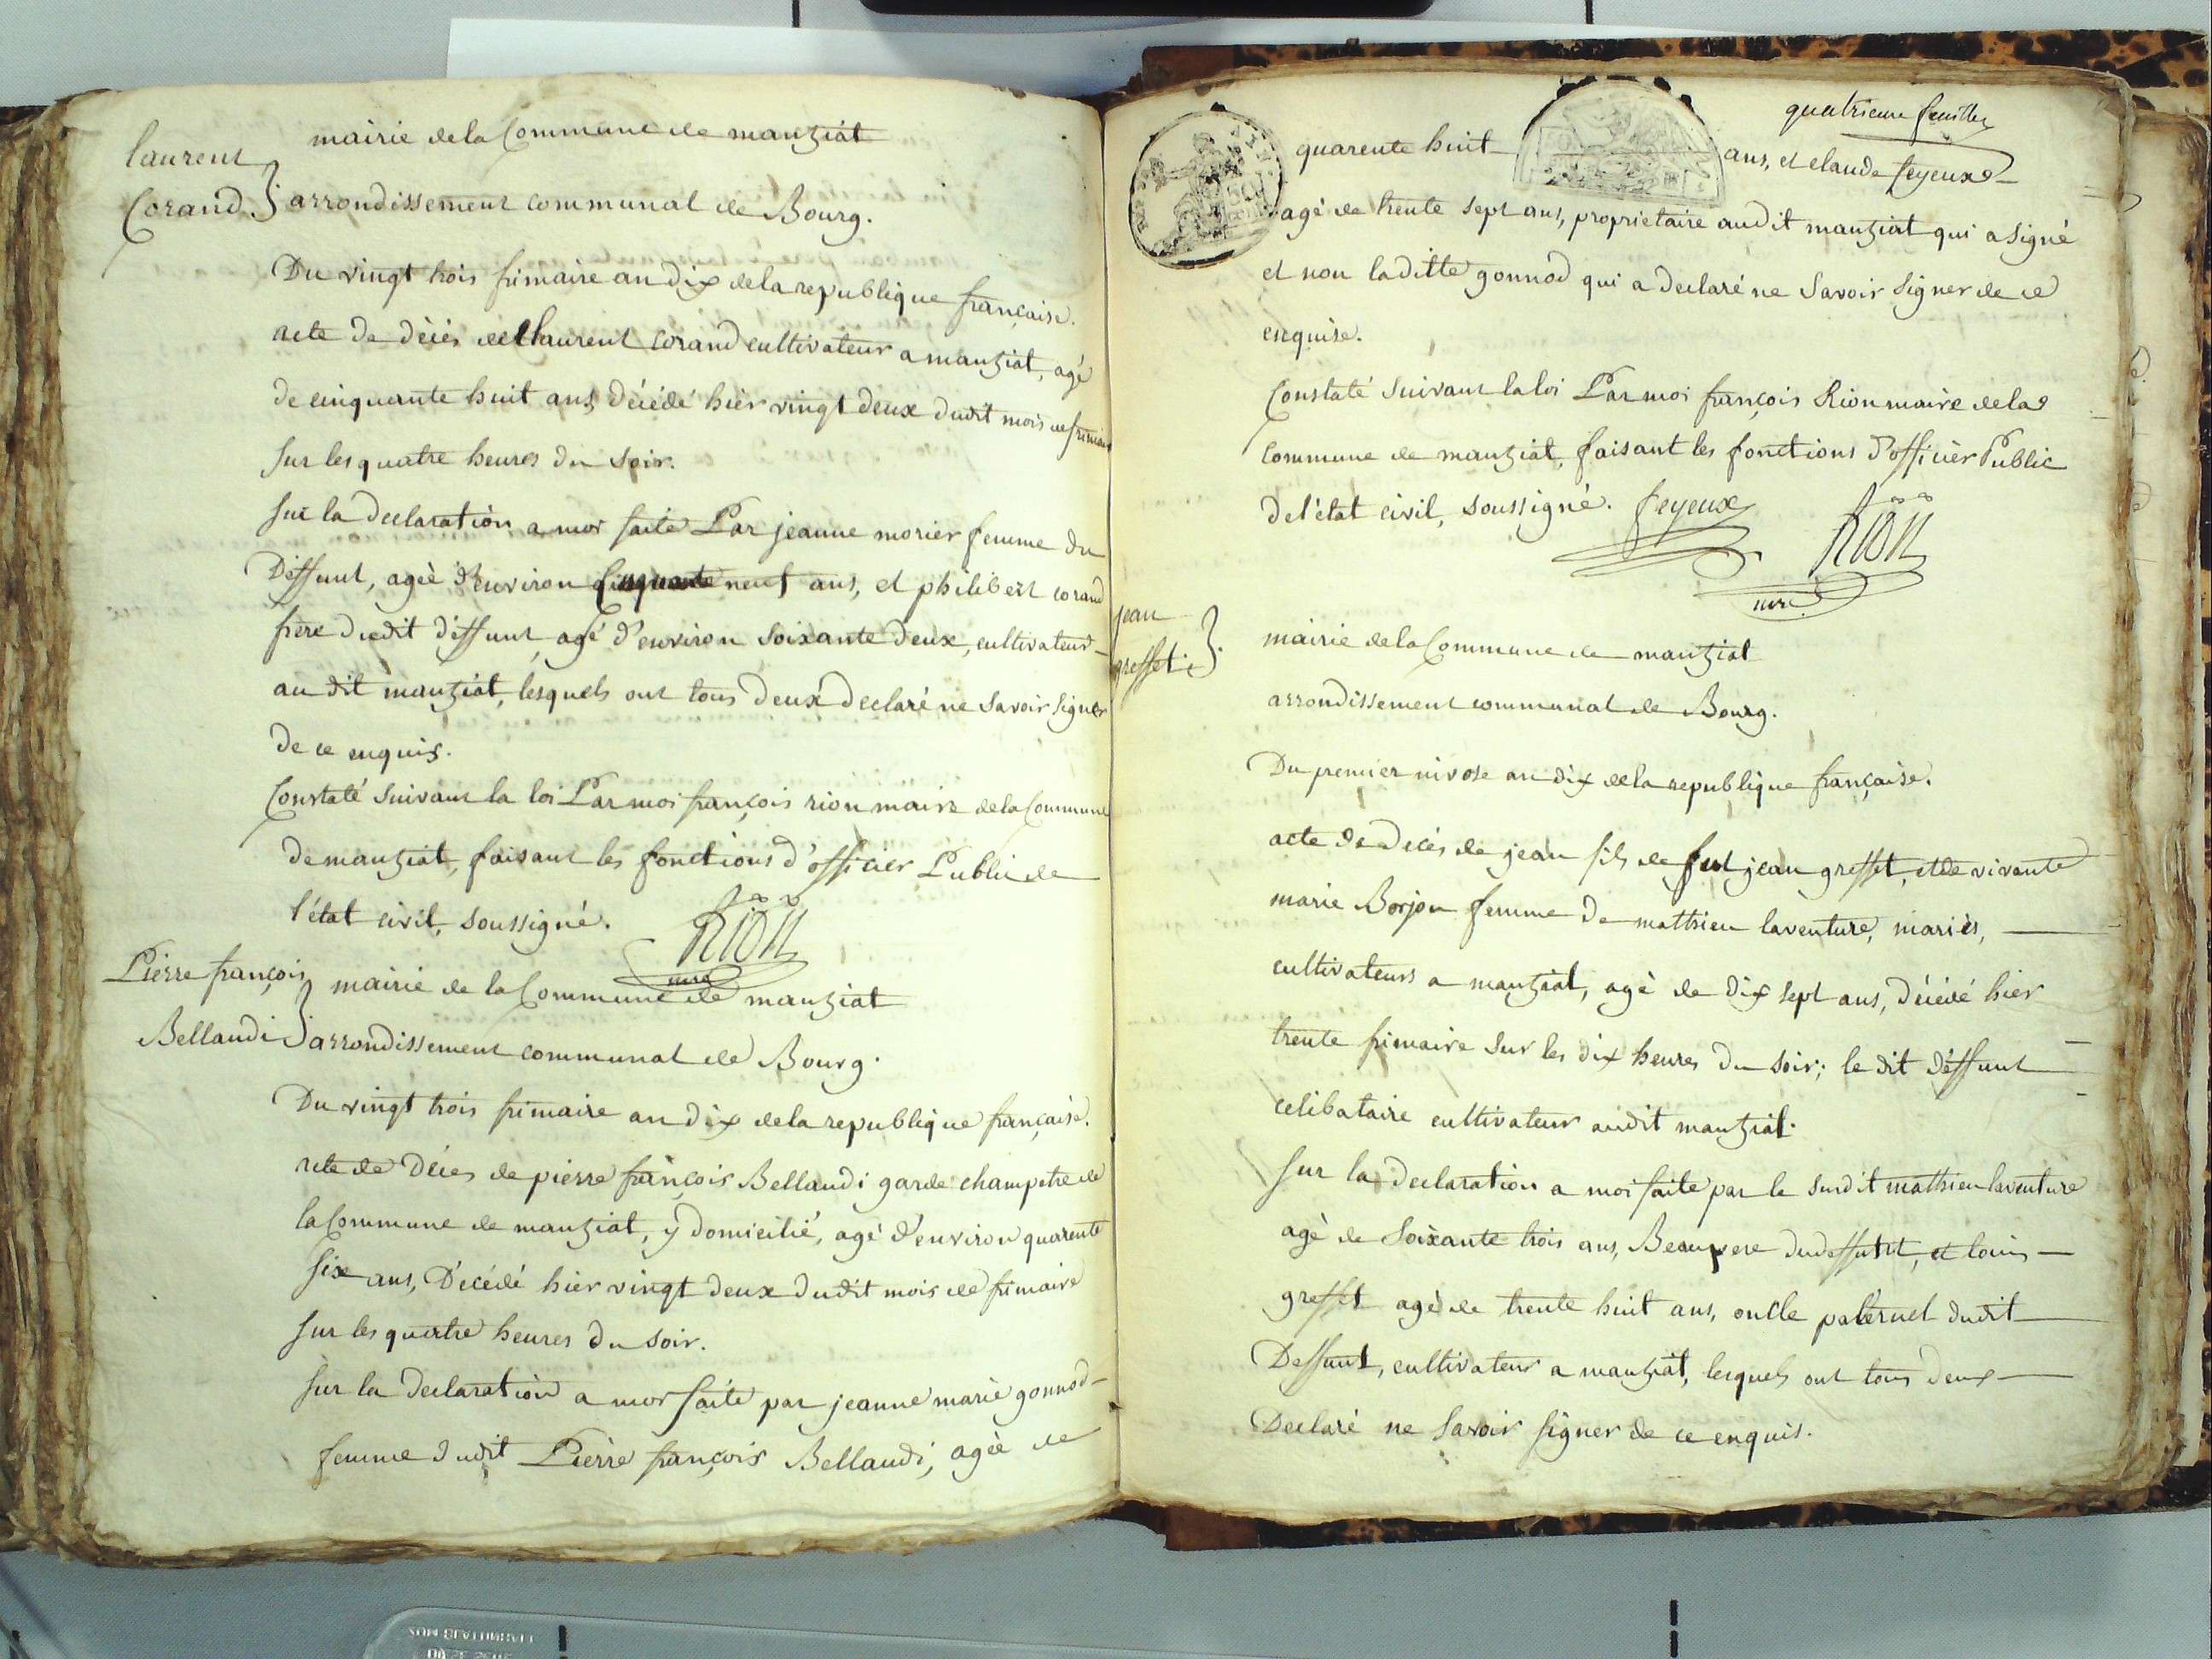 laurent
Corand
mairie de la Commune de manziat
arrondissement communal de Bourg.
Du vingt trois frimaire an dix de la republique française.
acte de décès de laurent Corand cultivateur a manziat, agé
de cinquante huit ans, décédé hier vingt deux dudit mois de frimaire
sur les quatre heures du soir.
sur la declaration a moi faite Par jeanne morier femme du
Deffunt, agèe d'environ cinquante neuf ans, et philibert corand
frère dudit déffunt, agé d'environ soixante deux, cultivateur
au dit manziat, lesquels ont tous deux declaré ne savoir signer
de ce enquis.
Constaté suivant la loi Par moi françois rion maire de la Commune
de manziat, faisant les fonctions d'officier Public de
l'état civil, soussigné. Rion
mre
Pierre françois
Bellaudi
mairie de la Commune de manziat
arrondissement communal de Bourg.
Du vingt trois frimaire an dix de la republique française.
acte de décès de pierre françois Bellaudi garde champetre de
la Commune de manziat, y domicilié, agé d'environ quarente
six ans, Décédé hier vingt deux dudit mois de frimaire
sur les quatre heures du soir.
sur la declaration a moi faite par jeanne marie gonnod
femme dudit Pierre françois Bellaudi, agée de
quatrieme feuillet
quarente huit ans, et claude feyeux
agé de trente sept ans, proprietaire audit manziat qui a signé
et non laditte gonnod qui a declaré ne savoir signer de ce
enquise.
Constaté suivant la loi Par moi françois Rion maire de la
commune de manziat, faisant les fonctions d'officier Public
de l'état civil, soussigné. feyeux Rion
mre
jean
greffet.
mairie de la Commune de manziat
arrondissement communal de Bourg.
Du premier nivose an dix de la republique française.
acte de decés de jean fils de feu jean greffet, et de vivante
marie Borjon femme de mathieu laventure, mariés,
cultivateurs a manziat, agé de dix sept ans, décédé hier
trente frimaire sur les dix heures du soir; le dit déffunt
celibataire cultivateur audit manziat.
sur la declaration a moi faite par le susdit mathieu laventure
agé de soixante trois ans, Beaupere dudeffunt, et louis
greffet agé de trente huit ans, oncle paternel dudit
Deffunt, cultivateur a manziat, lesquels ont tous deux
Declaré ne savoir signer de ce enquis.